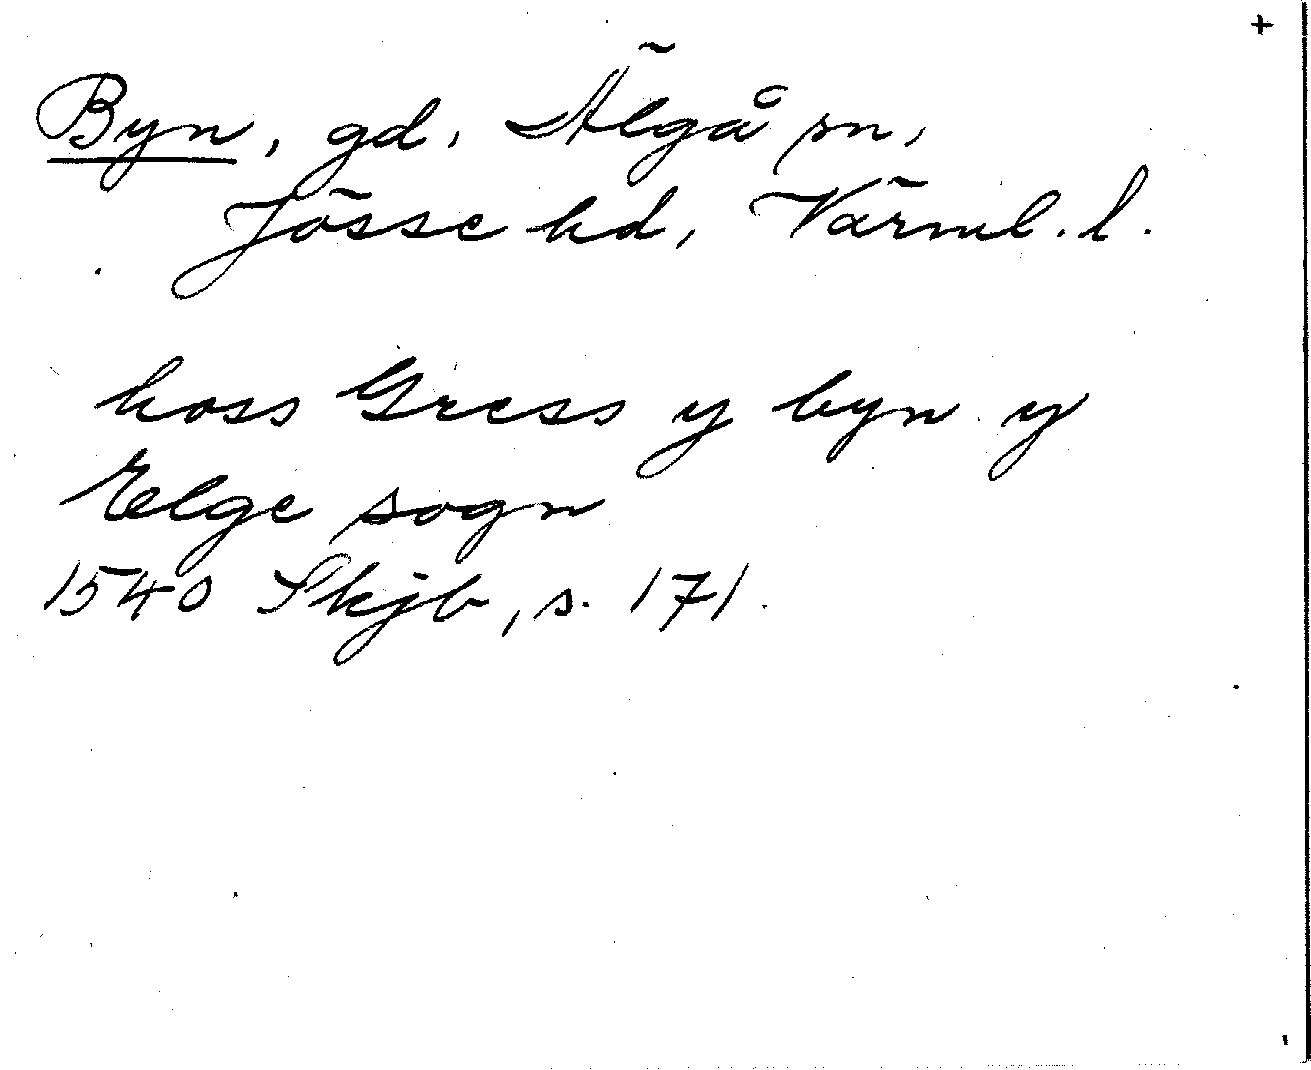 +
Byn, gd, Älgå sn,
Jösse hd, Värml. l.
hoss Gress y byn y
Elge sogn
1540 Skjb, s. 171.